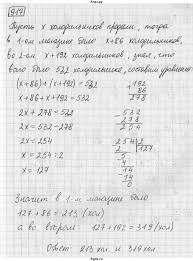 919
Пусть x холодильников продали, тогда
в 1-ом магазине было x+86 холодильников,
во 2-ом x+192 холодильников, зная, что
всего было 532 холодильника, составим уравнение
(x+86)+(x+192)=532
x+86+x+192=532
2x+278=532
2x=532-278
2x=254
x=254:2
x=127
+192
86
278
-532
278
254
254 2
2 127
5
4
14
14
0
Значит в 1-м магазине было
127+86=213 (хол)
а во втором 127+192=319 (хол)
Ответ: 213 хол. и 319 хол.